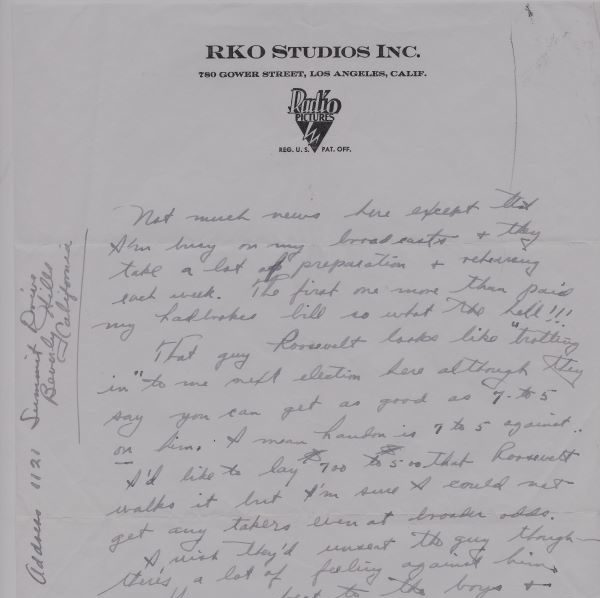 RKO STUDIOS INC.
780 GOWER STREET, LOS ANGELES, CALIF.
Radio
PICTURES
REG. U. S. PAT. OFF.
Not much news here except that
I'm busy on my broadcasts & they
take a lot of preparation & rehearsing
each week. The first one more than paid
my Ladbrokes bill so what the hell!!!
That guy Roosevelt looks like "trotting
in" to me next election here although they
say you can get as good as 7 to 5
on him. I mean Landon is 7 to 5 against.
I'd like to lay $700 to $500 that Roosevelt
walks it but I'm sure I could not
get any takers even at broader odds.
I wish they'd unseat the guy though—
there's a lot of feeling against him.
best to the boys &
Address 1121 Summit Drive
Beverly Hills
California